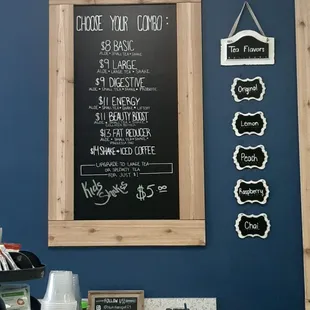 CHOOSE YOUR COMBO:
$8 BASIC
ALOE + SMALL TEA + SHAKE
$9 LARGE
ALOE + LARGE TEA + SHAKE
$9 DIGESTIVE
ALOE + SMALL TEA + SHAKE + PROBIOTIC
$11 ENERGY
ALOE + SMALL TEA + SHAKE + LIFTOFF
$11 BEAUTY BOOST
$13 FAT REDUCER
$14 SHAKE + ICED COFFEE
UPGRADE TO LARGE TEA
OR SPECIALTY TEA
FOR JUST $1
Kids Shakes $5.00
Tea Flavors
Original
Lemon
Peach
Raspberry
Chai
FOLLOW US!